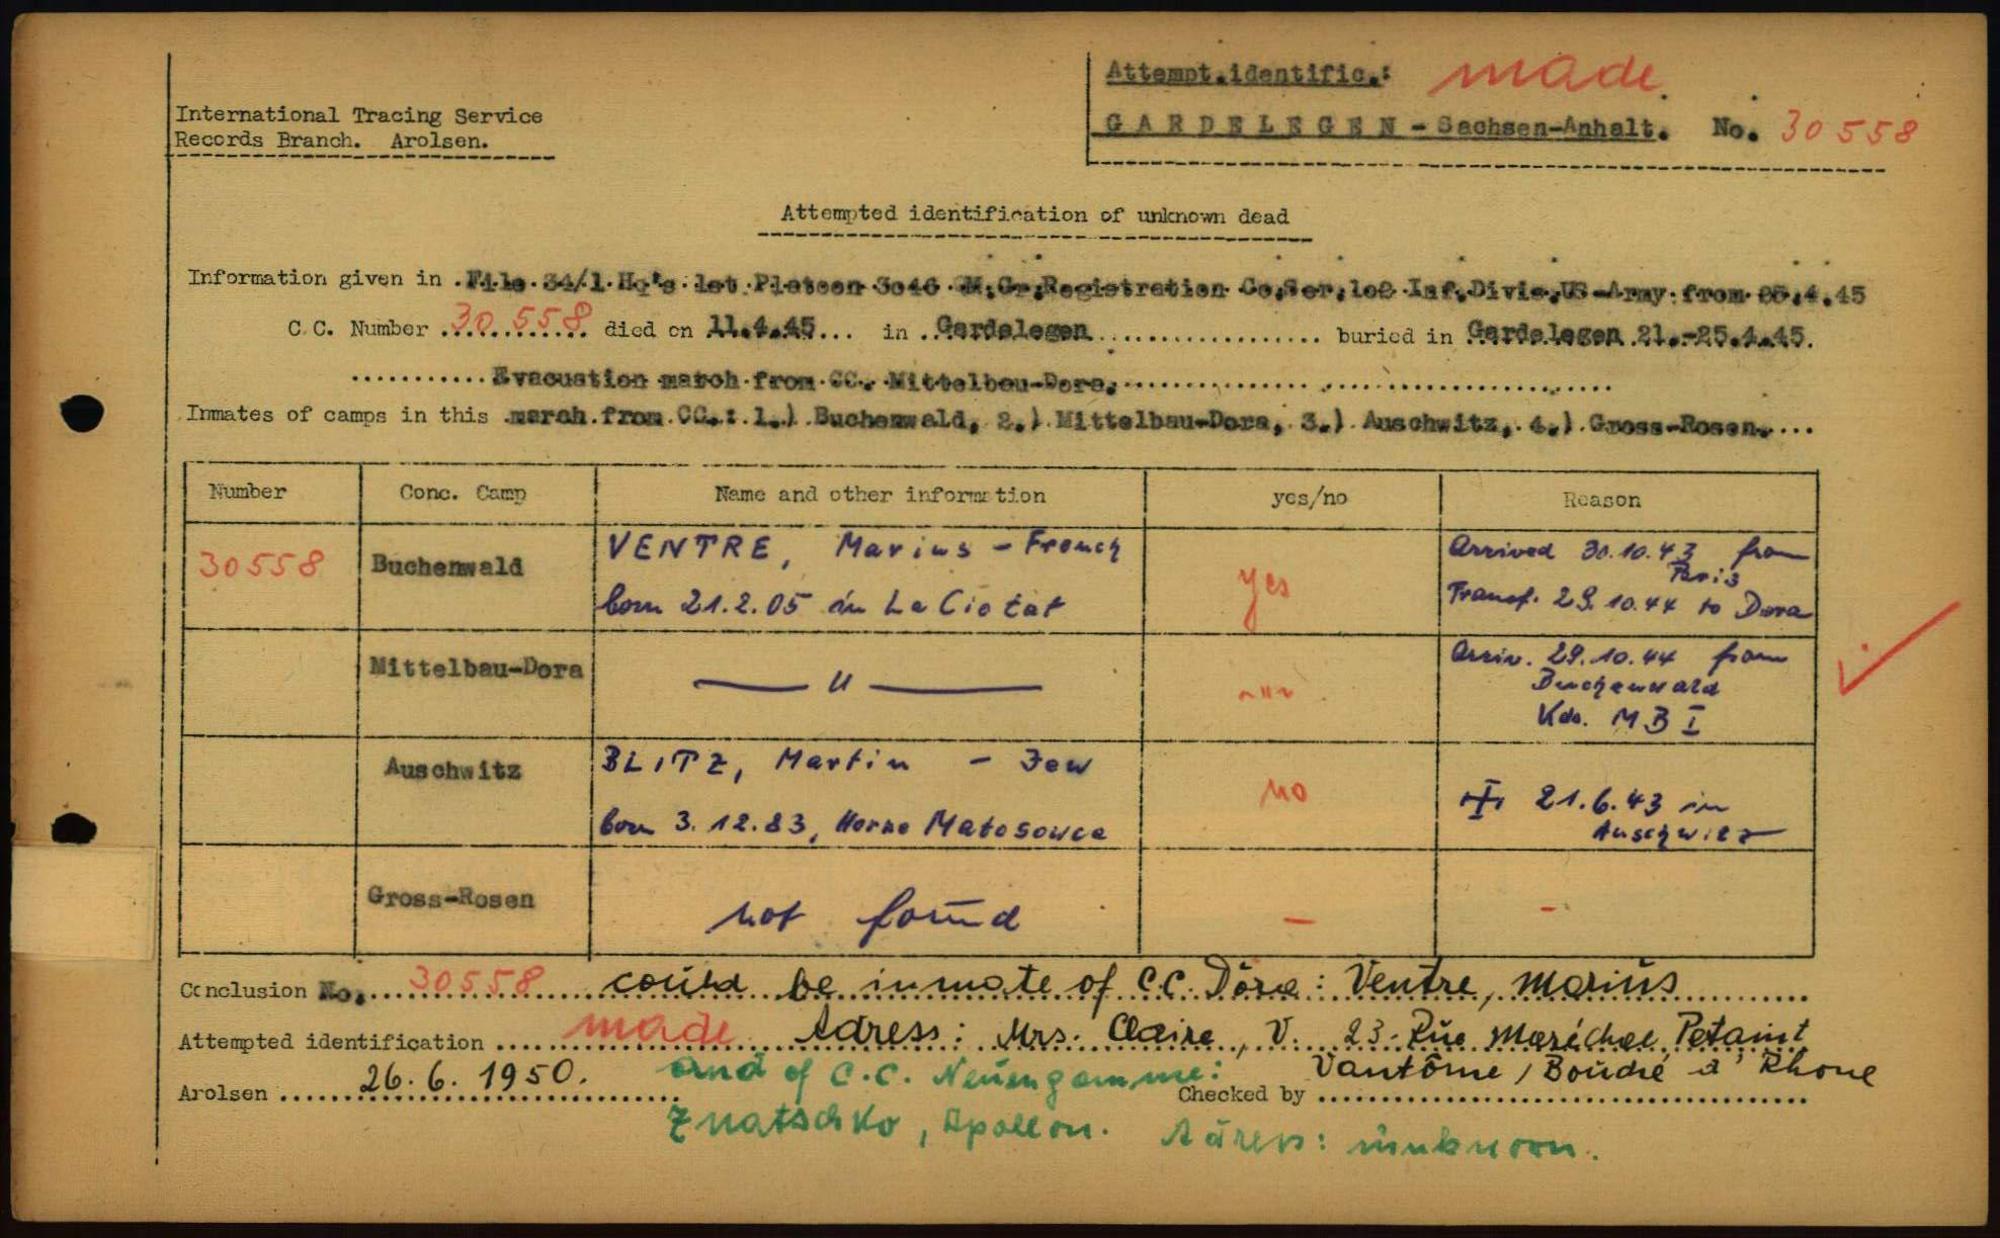 Attempt.identific.: made
International Tracing Service
Records Branch. Arolsen.
GARDELEGEN - Sachsen-Anhalt. No. 30558
Attempted identification of unknown dead
Information given in File 34/1 Hq's 1st Platoon 3046 Gr.Registration Co, Ser, 102 Inf.Divis,US-Army from .4.45
C.C. Number 30 558 died on 11.4.45... in ..Gardelegen.................... buried in Gardelegen 21.-25.4.45.
...........Evacuation march from CC. Mittelbau-Dora.
Inmates of camps in this march from CC.: 1.) Buchenwald, 2.) Mittelbau-Dora, 3.) Auschwitz, 4.) Gross-Rosen....
Number Conc. Camp Name and other information yes/no Reason
30558 Buchenwald VENTRE, Marius - French yes Arrived 30.10.43 from Paris
born 21.2.05 in La Ciotat Transf. 29.10.44 to Dora
Mittelbau-Dora —— " —— -"- Arriv. 29.10.44 from
Buchenwald
Kdo. MB I
Auschwitz BLITZ, Martin - Jew no
born 3.12.83, Horne Matosowce 21.6.43 in
Auschwitz
Gross-Rosen not found - -
Conclusion No. 30558 could be inmate of C.C. Dora: Ventre, Marius
Attempted identification made Adress: Mrs. Claire, V. 23 Rue Maréchal Petaint
Vantôme / Bouche d' Rhone
Arolsen 26.6.1950. Checked by
and of C.C. Neuengamme:
Znatschko, Apollon. Adress: unknown.